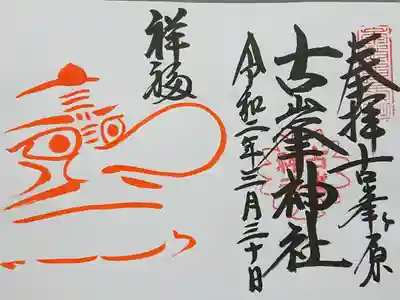 奉拝古峯ヶ原
古峯神社
令和二年三月三十日
祥福